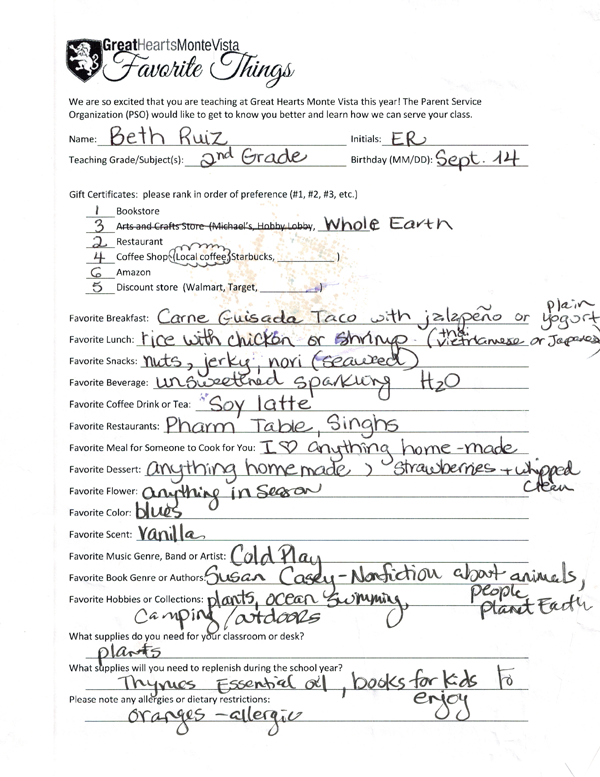 GreatHeartsMonteVista
Favorite Things
We are so excited that you are teaching at Great Hearts Monte Vista this year! The Parent Service
Organization (PSO) would like to get to know you better and learn how we can serve your class.
Name: Beth Ruiz Initials: ER
Teaching Grade/Subject(s): 2nd Grade Birthday (MM/DD): Sept. 14
Gift Certificates: please rank in order of preference (#1, #2, #3, etc.)
1 Bookstore
3 Arts and Crafts Store (Michael's, Hobby Lobby, Whole Earth
2 Restaurant
4 Coffee Shop (Local coffee, Starbucks, ____________ )
6 Amazon
5 Discount store (Walmart, Target, ____________)
Favorite Breakfast: Carne Guisada Taco with jalapeño or plain yogurt
Favorite Lunch: rice with chicken or shrimp (thai Vietnamese or Japanese)
Favorite Snacks: nuts, jerky, nori (seaweed)
Favorite Beverage: unsweetened sparkling H2O
Favorite Coffee Drink or Tea: Soy latte
Favorite Restaurants: Pharm Table, Singhs
Favorite Meal for Someone to Cook for You: I ♡ anything home-made
Favorite Dessert: anything homemade, strawberries + whipped cream
Favorite Flower: anything in season
Favorite Color: blues
Favorite Scent: Vanilla
Favorite Music Genre, Band or Artist: Cold Play
Favorite Book Genre or Authors: Susan Casey - Nonfiction about animals, people Planet Earth
Favorite Hobbies or Collections: plants, ocean swimming,
Camping/outdoors
What supplies do you need for your classroom or desk?
plants
What supplies will you need to replenish during the school year?
Thymes Essential oil, books for kids to enjoy
Please note any allergies or dietary restrictions:
oranges - allergic